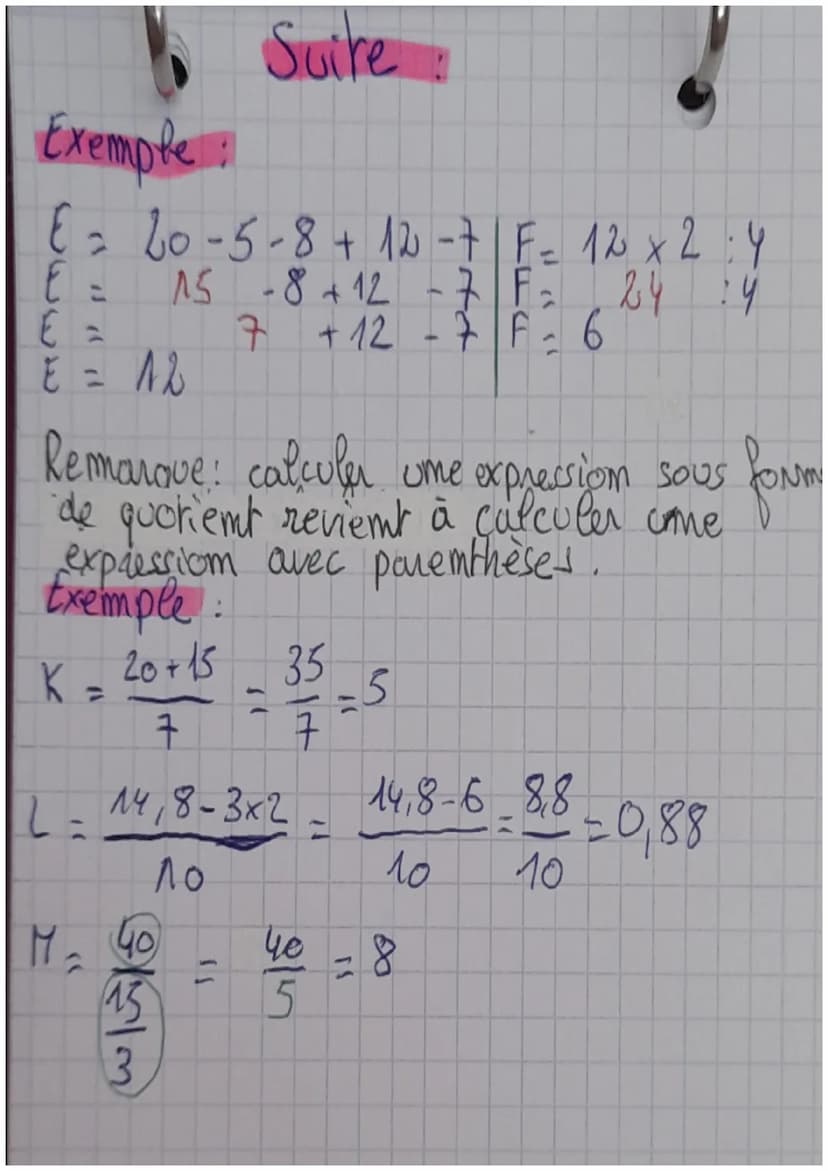 Suite :
Exemple :
E = 20 - 5 - 8 + 12 - 7 | F = 12 x 2 : 4
E = 15 - 8 + 12 - 7 | F = 24 : 4
E = 7 + 12 - 7 | F = 6
E = 12
Remarque : calculer une expression sous form
de quotient revient à calculer une
expression avec parenthèses.
Exemple :
K = (20 + 15)/7 = 35/7 = 5
L = (14,8 - 3x2)/10 = (14,8 - 6)/10 = 8,8/10 = 0,88
M = 40/(15/3) = 40/5 = 8